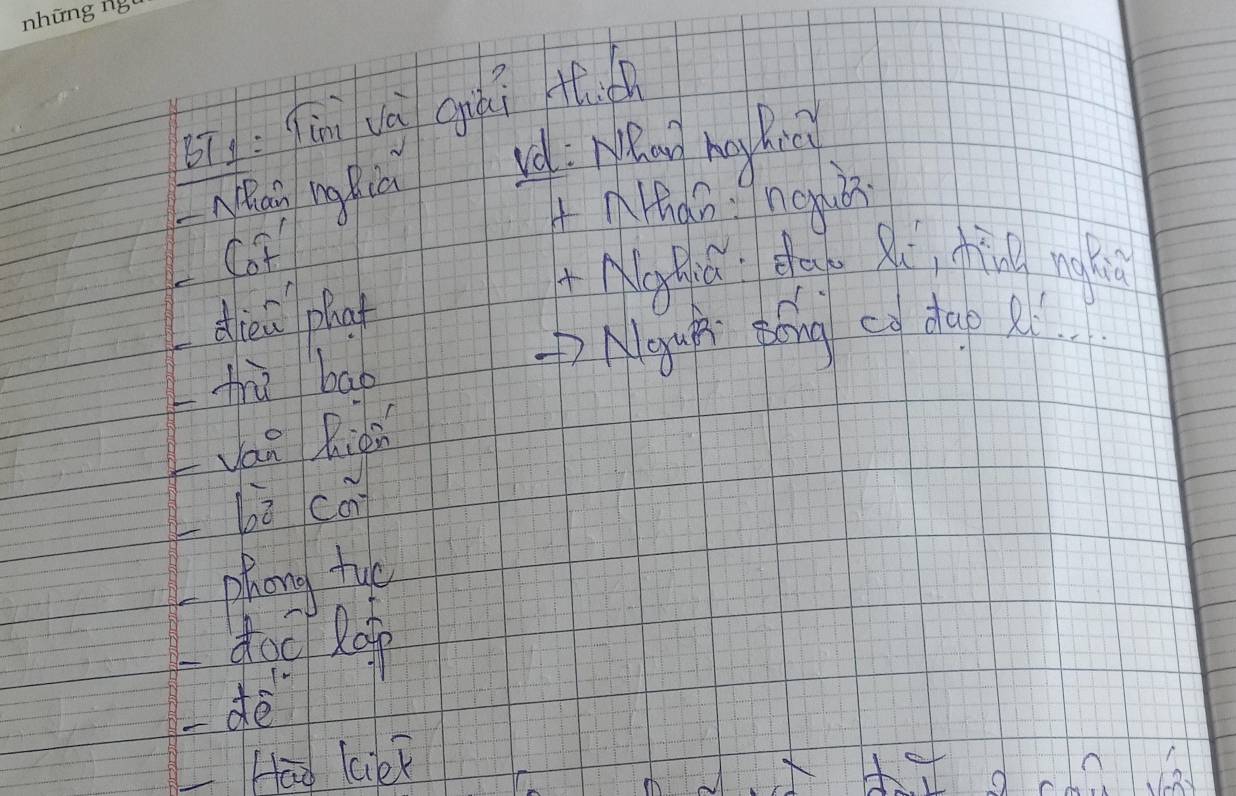 những
BT1: Tìm và giải thích
- Nhân nghĩa
- Cốt
- điếu phạt
- trừ bạo
- văn hiến
- bờ cõi
- phong tục
- độc lập
- đế
- Hào kiệt
vd: Nhân nghĩa
+ Nhân: người
+ Nghĩa: đạo lí, tình nghĩa
→ Người sống có đạo lí....